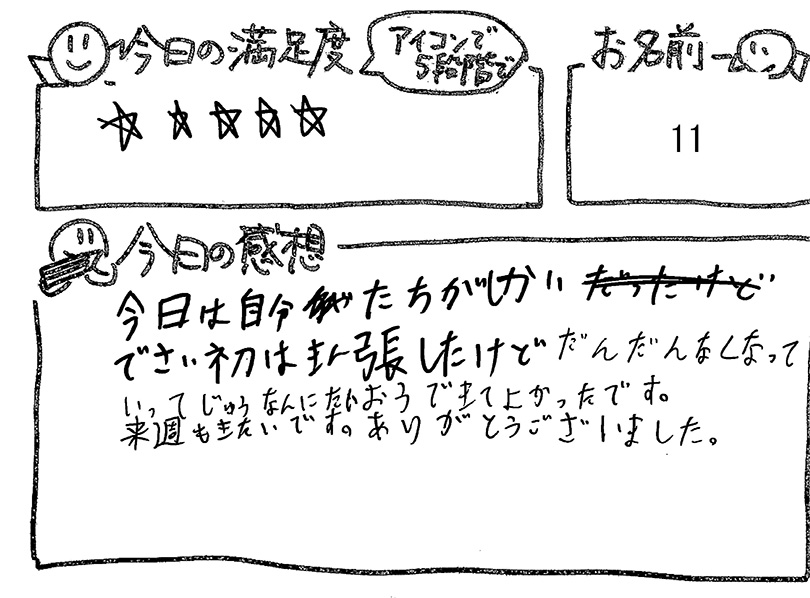 今日の満足度
アイコンで
5段階で
お名前
11
今日の感想
今日は自分たちがしかい だったけど
でさい初はまん張したけど だんだんなくなって
いってじゅうなんにたいおうできてよかったです。
来週もきたいです。ありがとうございました。